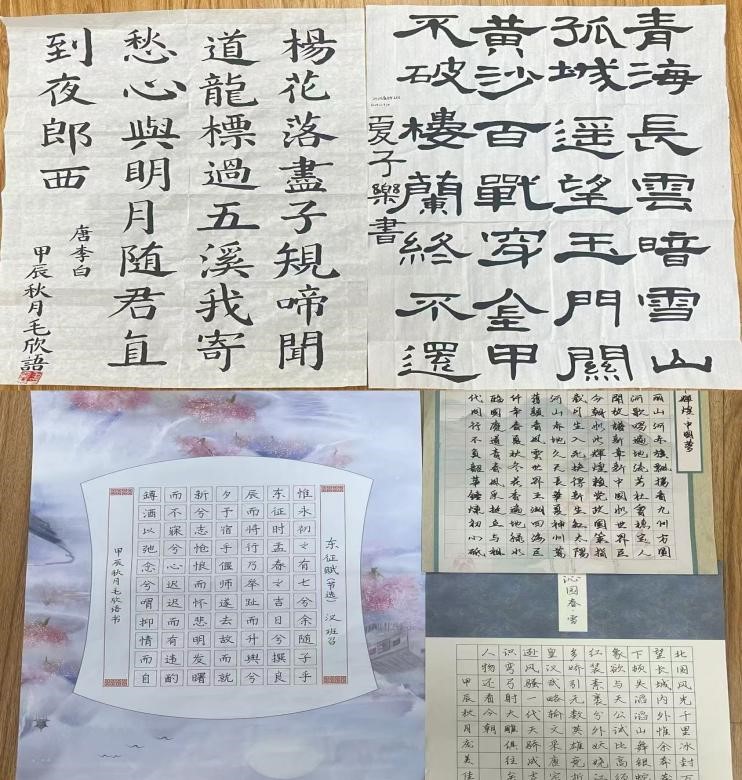 楊花落盡子䂓啼聞
道龍標過五溪我寄
愁心與明月随君直
到夜郎西
唐李白
甲辰秋月毛欣語
青海長雲暗雪山
孤城遥望玉門關
黄沙百戰穿金甲
不破樓蘭終不還
夏子樂書
东征赋（节选） 汉 班昭
惟永初之有七兮余随子乎
东征时孟春之吉日兮撰良
辰而将行乃举趾而升舆兮
夕予宿乎偃师遂去故而就
新兮志怆恨而怀悲明发曙
而不寐兮心迟迟而有违酌
罇酒以弛念兮喟抑情而自
甲辰秋月毛欣语书
輝煌中國夢
河歌唱遍地流芳社會穩定人
開放譜新章新中國如世界巨
河山春地久天長華夏神州萬
沁园春 雪
北国风光千里冰封万
望长城内外惟余莽
下顿失滔滔山舞银蛇
象欲与天公试比高
红装素裹分外妖娆
多娇引无数英雄竞折
皇汉武略输文采唐宗
逊风骚一代天骄成吉
识弯弓射大雕俱往
人物还看今朝
甲辰秋月 美佳